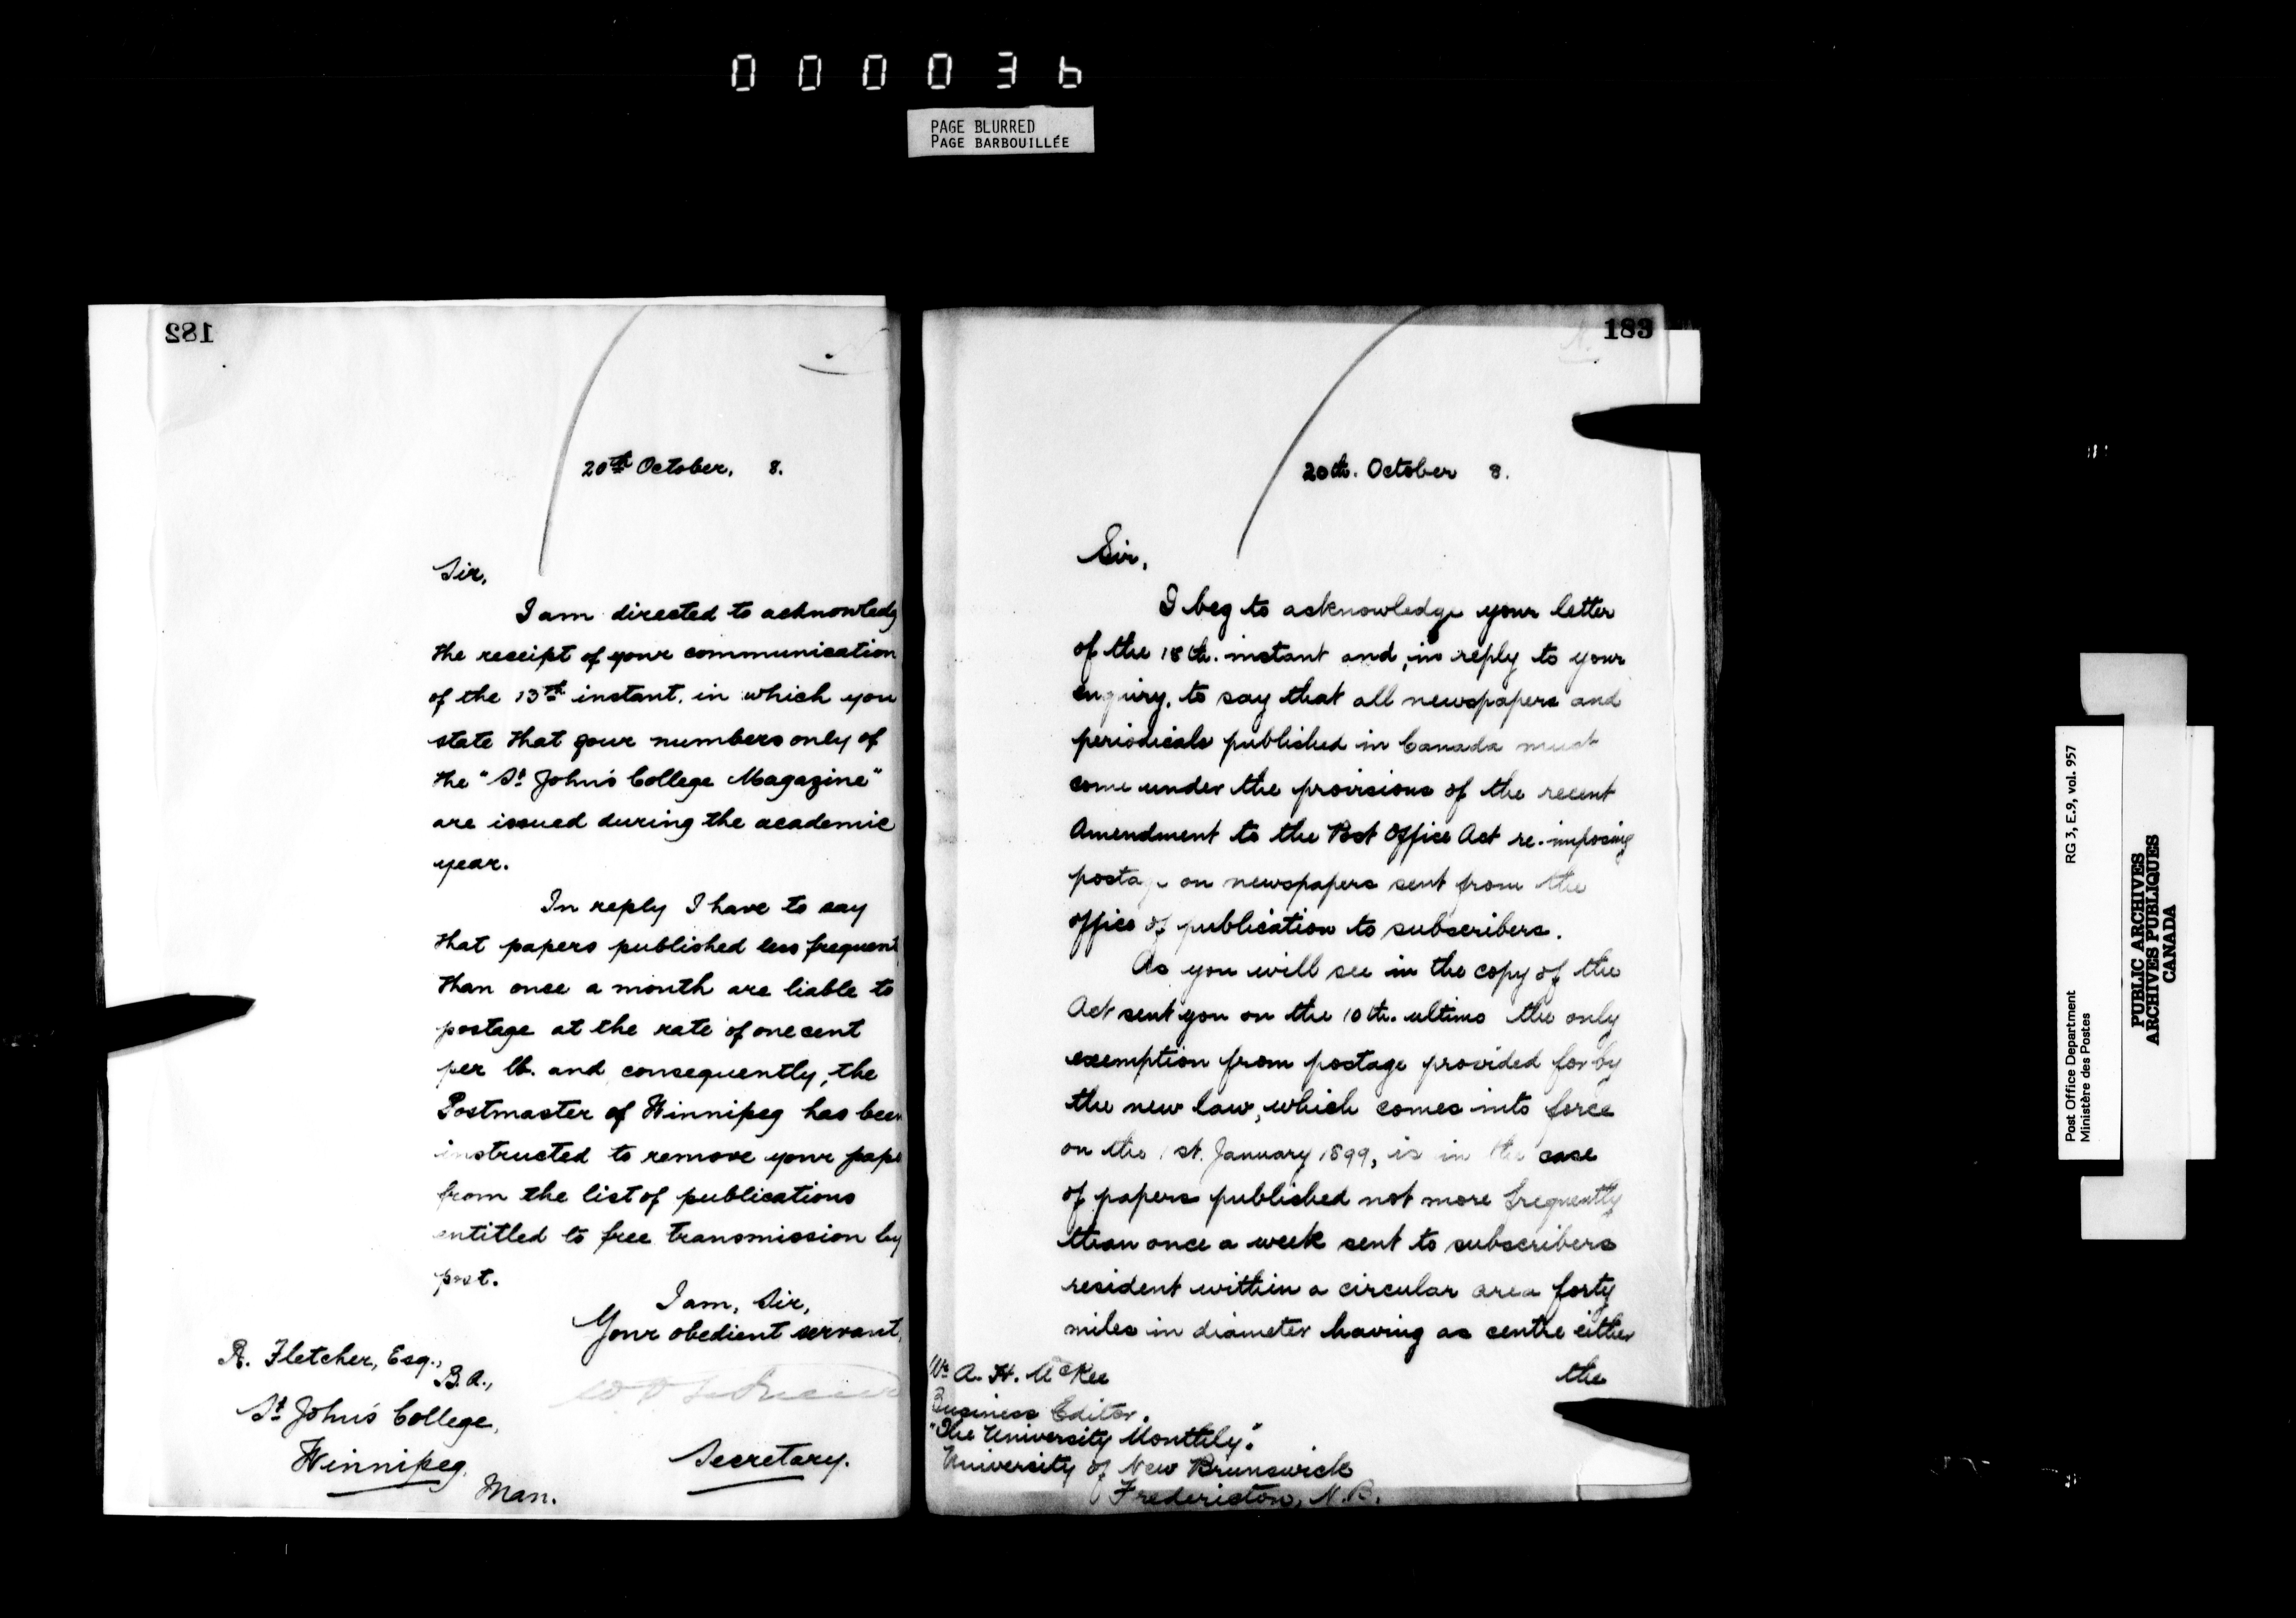 000036
PAGE BLURRED
PAGE BARBOUILLÉE
182
20th October, 8.
Sir,
I am directed to acknowledg
the receipt of your communication
of the 13th instant, in which you
state that four numbers only of
the "St John's College Magazine"
are issued during the academic
year.
In reply I have to say
that papers published less frequent
than once a month are liable to
postage at the rate of one cent
per lb. and consequently, the
Postmaster of Winnipeg has been
instructed to remove your pape
from the list of publications
entitled to free transmission by
post.
I am, Sir,
Your obedient servant,
Secretary.
R. Fletcher, Esq.,
B.A.,
St John's College,
Winnipeg,
Man.
183
20th. October 8.
Sir,
I beg to acknowledge your letter
of the 18th. instant and, in reply to your
enquiry, to say that all newspapers and
periodicals published in Canada must
come under the provisions of the recent
Amendment to the Post Office Act re-imposing
postage on newspapers sent from the
office of publication to subscribers.
As you will see in the copy of the
Act sent you on the 10th. ultimo the only
exemption from postage provided for by
the new law, which comes into force
on the 1st. January 1899, is in the case
of papers published not more frequently
than once a week sent to subscribers
resident within a circular area forty
miles in diameter having as centre either
the
A. H. McKee
Business Editor.
"The University Monthly".
University of New Brunswick
Fredericton, N.B.
Post Office Department
Ministère des Postes
RG 3, E.9, vol. 957
PUBLIC ARCHIVES
ARCHIVES PUBLIQUES
CANADA